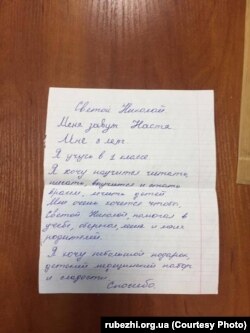 Святой Николай.
Меня завут Настя
Мне 8 лет
Я учусь в 2 классе
Я хочу научится читать,
писать, выучится и стать
врачом, лечить детей
Мне очень хочется чтобы,
Святой Николай, помогал в
учебе, оберегал меня и моих
родителей.
Я хочу небольшой подарок
детский медицинский набор
и сладости.
Спасибо.
rubezhi.org.ua (Courtesy Photo)